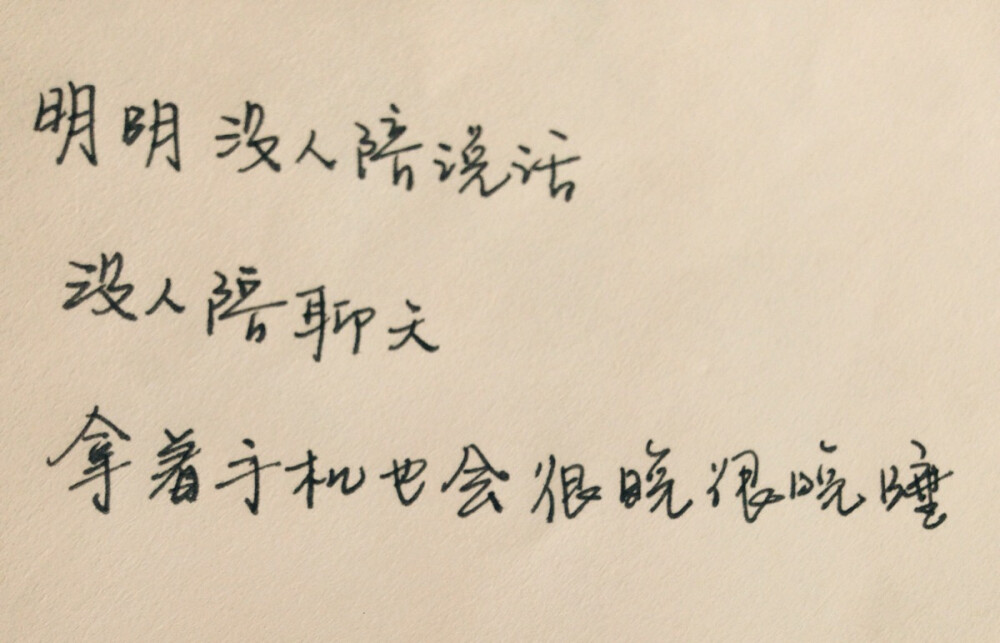 明明没人陪说话
没人陪聊天
拿着手机也会很晚很晚睡